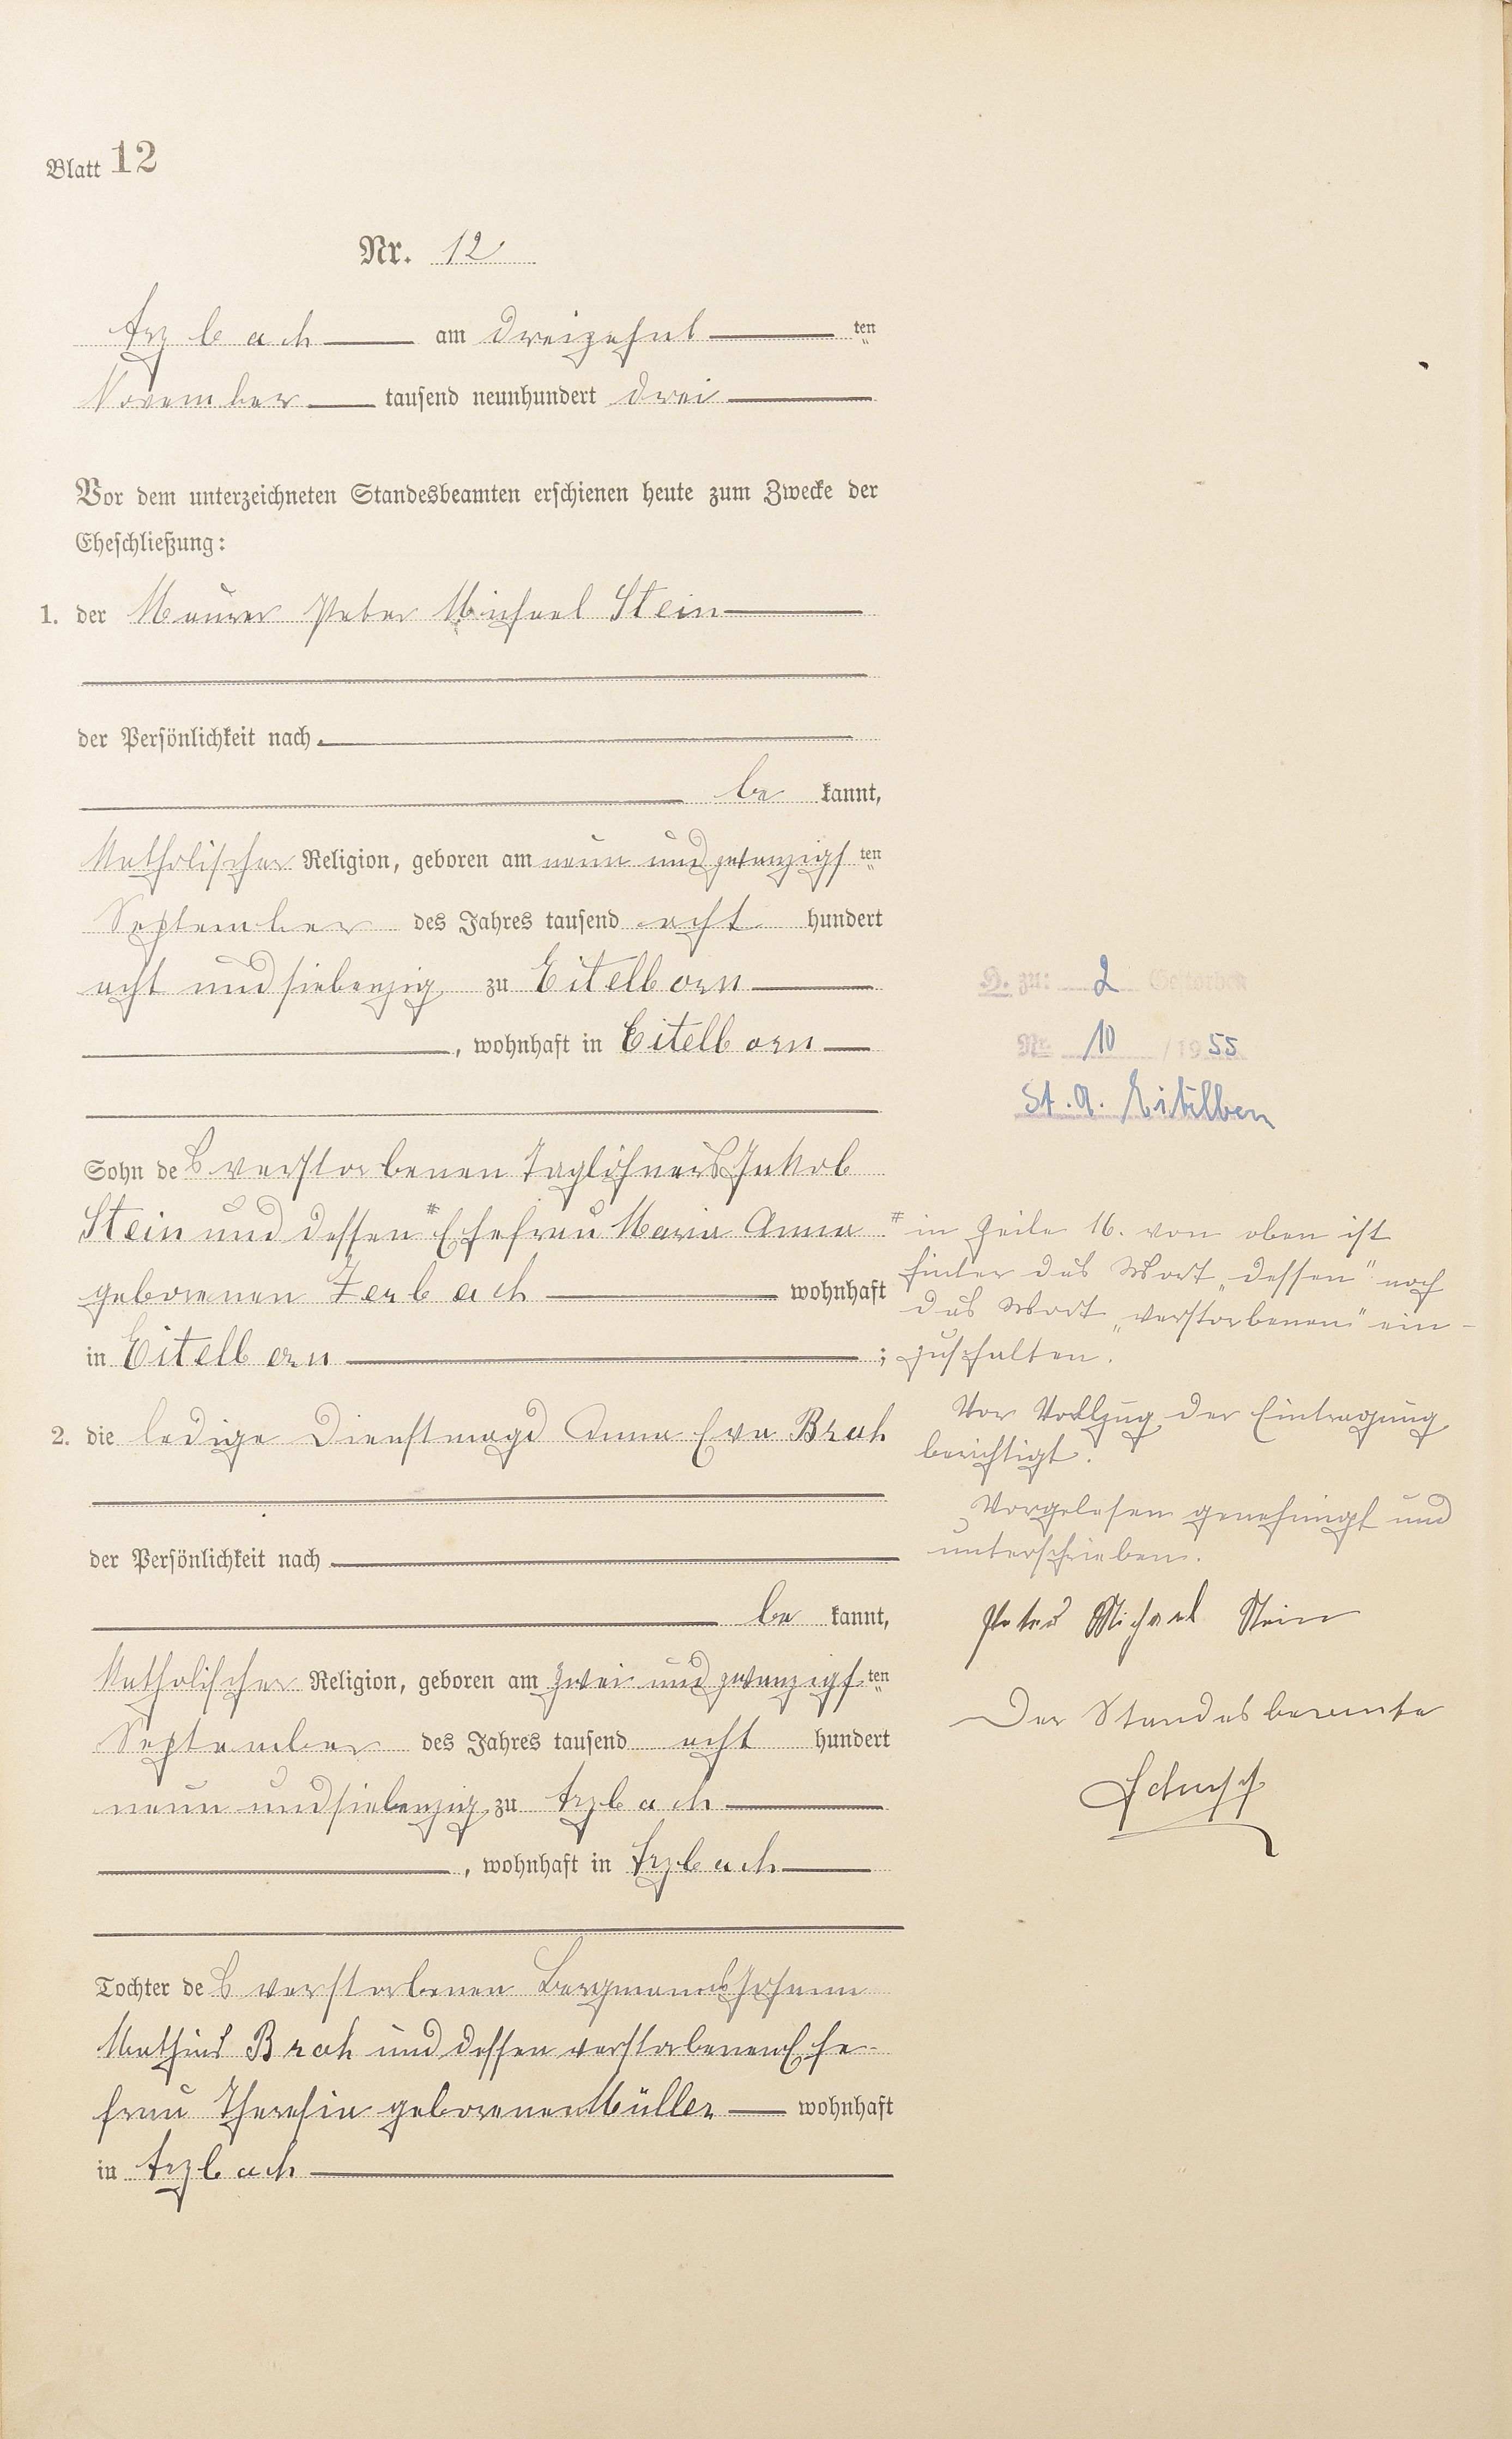 Blatt 12
Nr. 12
Arzbach am dreizehnt ten
November tausend neunhundert drei
Vor dem unterzeichneten Standesbeamten erschienen heute zum Zwecke der
Eheschließung:
1. der Maurer Peter Michael Stein
der Persönlichkeit nach
be kannt,
katholischer Religion, geboren am neun und zwanzigs ten
September des Jahres tausend acht hundert
acht und siebenzig zu Eitelborn
, wohnhaft in Eitelborn
Sohn des verstorbenen Taglöhners Jakob
Stein und dessen # Ehefrau Maria Anna
geborenen Zerbach wohnhaft
in Eitelborn ;
2. die ledige Dienstmagd Anna Eva Brah
der Persönlichkeit nach
be kannt,
katholischer Religion, geboren am zwei und zwanzigs ten
September des Jahres tausend acht hundert
neun und siebenzig zu Arzbach
, wohnhaft in Arzbach
Tochter des verstorbenen Bergmanns Johann
Mathias Brah und dessen verstorbenen Ehe-
frau Theresia geborenen Müller wohnhaft
in Arzbach
H. zu: 2 Gestorben
Nr. 10 / 1955
St. A. Eitelborn
# in Zeile 16. von oben ist
hinter das Wort „dessen" noch
das Wort „verstorbenen" ein-
zuschalten.
Vor Vollzug der Eintragung
berichtigt.
Vorgelesen genehmigt und
unterschrieben.
Peter Michael Stein
Der Standesbeamte